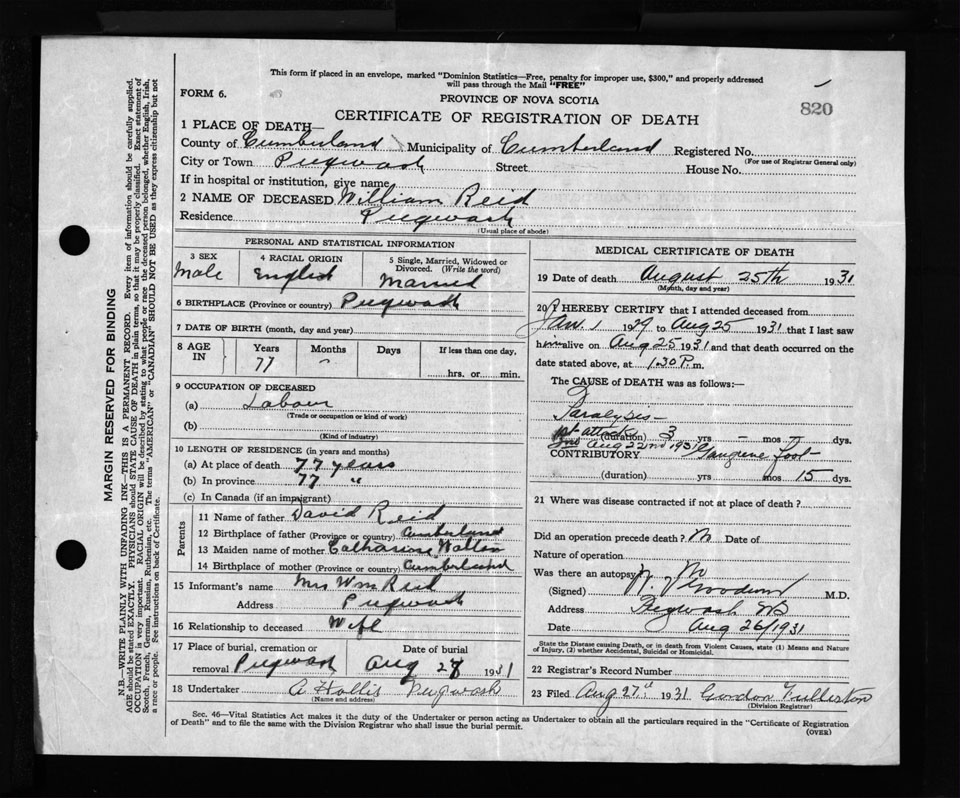 This form if placed in an envelope, marked "Dominion Statistics—Free, penalty for improper use, $300," and properly addressed
will pass through the Mail "FREE"
FORM 6.
PROVINCE OF NOVA SCOTIA
820
CERTIFICATE OF REGISTRATION OF DEATH
1 PLACE OF DEATH—
County of Cumberland Municipality of Cumberland Registered No.
(For use of Registrar General only)
City or Town Pugwash Street House No.
If in hospital or institution, give name
2 NAME OF DECEASED William Reid
Residence Pugwash
(Usual place of abode)
PERSONAL AND STATISTICAL INFORMATION
3 SEX 4 RACIAL ORIGIN 5 Single, Married, Widowed or
Divorced. (Write the word)
Male English Married
6 BIRTHPLACE (Province or country) Pugwash
7 DATE OF BIRTH (month, day and year)
8 AGE IN Years Months Days If less than one day,
77 hrs. or min.
9 OCCUPATION OF DECEASED
(a) Labour
(Trade or occupation or kind of work)
(b)
(Kind of industry)
10 LENGTH OF RESIDENCE (in years and months)
(a) At place of death 77 years
(b) In province 77 "
(c) In Canada (if an immigrant)
Parents
11 Name of father David Reid
12 Birthplace of father (Province or country) Cumberland
13 Maiden name of mother Catharine
14 Birthplace of mother (Province or country) Cumberland
15 Informant's name Mrs Wm Reid
Address Pugwash
16 Relationship to deceased Wife
17 Place of burial, cremation or Date of burial
removal Pugwash Aug 1931
18 Undertaker A Hollis Pugwash
(Name and address)
MEDICAL CERTIFICATE OF DEATH
19 Date of death August 25th 1931
(Month, day and year)
20 I HEREBY CERTIFY that I attended deceased from
Jan. 1 1929 to Aug 25 - 1931 that I last saw
him alive on Aug 25 1931 and that death occurred on the
date stated above, at 1.30 P. m.
The CAUSE of DEATH was as follows:—
Paralysis—
1st attack (duration) 3 yrs - mos - dys.
2nd Aug 22nd 1931
CONTRIBUTORY Gangrene foot—
(duration) yrs mos 15 dys.
21 Where was disease contracted if not at place of death?
Did an operation precede death? Date of
Nature of operation
Was there an autopsy?
(Signed) M.D.
Address Pugwash NS
Date Aug 26/1931
State the Disease Causing Death, or in death from Violent Causes, state (1) Means and Nature
of Injury, (2) whether Accidental, Suicidal or Homicidal.
22 Registrar's Record Number
23 Filed Aug 27th 1931 Gordon Fullerton
(Division Registrar)
Sec. 46—Vital Statistics Act makes it the duty of the Undertaker or person acting as Undertaker to obtain all the particulars required in the "Certificate of Registration
of Death" and to file the same with the Division Registrar who shall issue the burial permit.
(OVER)
MARGIN RESERVED FOR BINDING
N.B.—WRITE PLAINLY WITH UNFADING INK—THIS IS A PERMANENT RECORD. Every item of information should be carefully supplied.
AGE should be stated EXACTLY. PHYSICIANS should STATE CAUSE OF DEATH in plain terms, so that it may be properly classified. Exact statement of
OCCUPATION is very important. RACIAL ORIGIN will be described by stating to what people or race the deceased person belonged, whether English, Irish,
Scotch, French, German, Russian, Ruthenian, etc. The terms "AMERICAN" or "CANADIAN" SHOULD NOT BE USED as they express citizenship but not
a race or people. See instructions on back of Certificate.